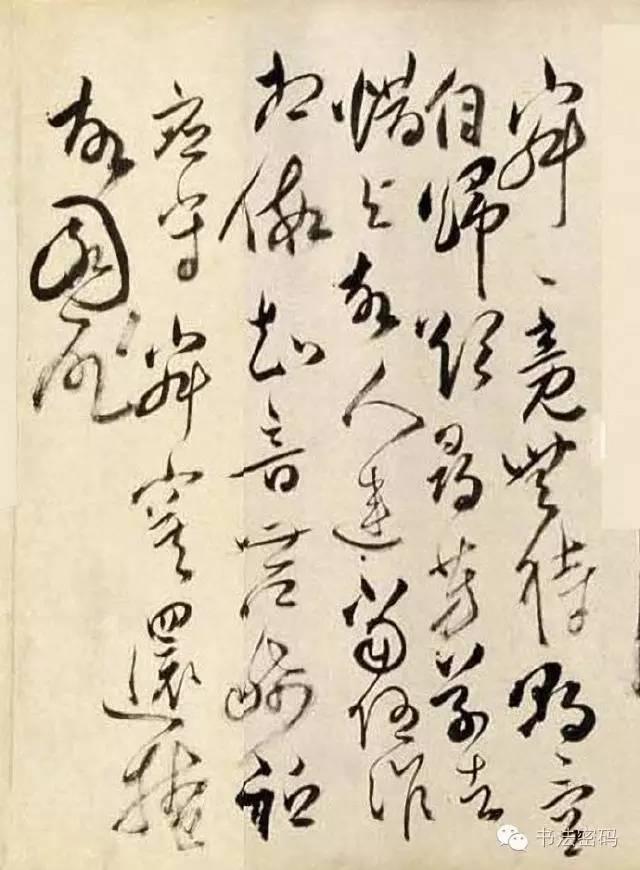 寂〻竟無待朝〻空
自歸欲尋芳草去
惜与故人違當路誰
相假知音世所稀祗
應守寂寞還掩
故園扉
书法密码